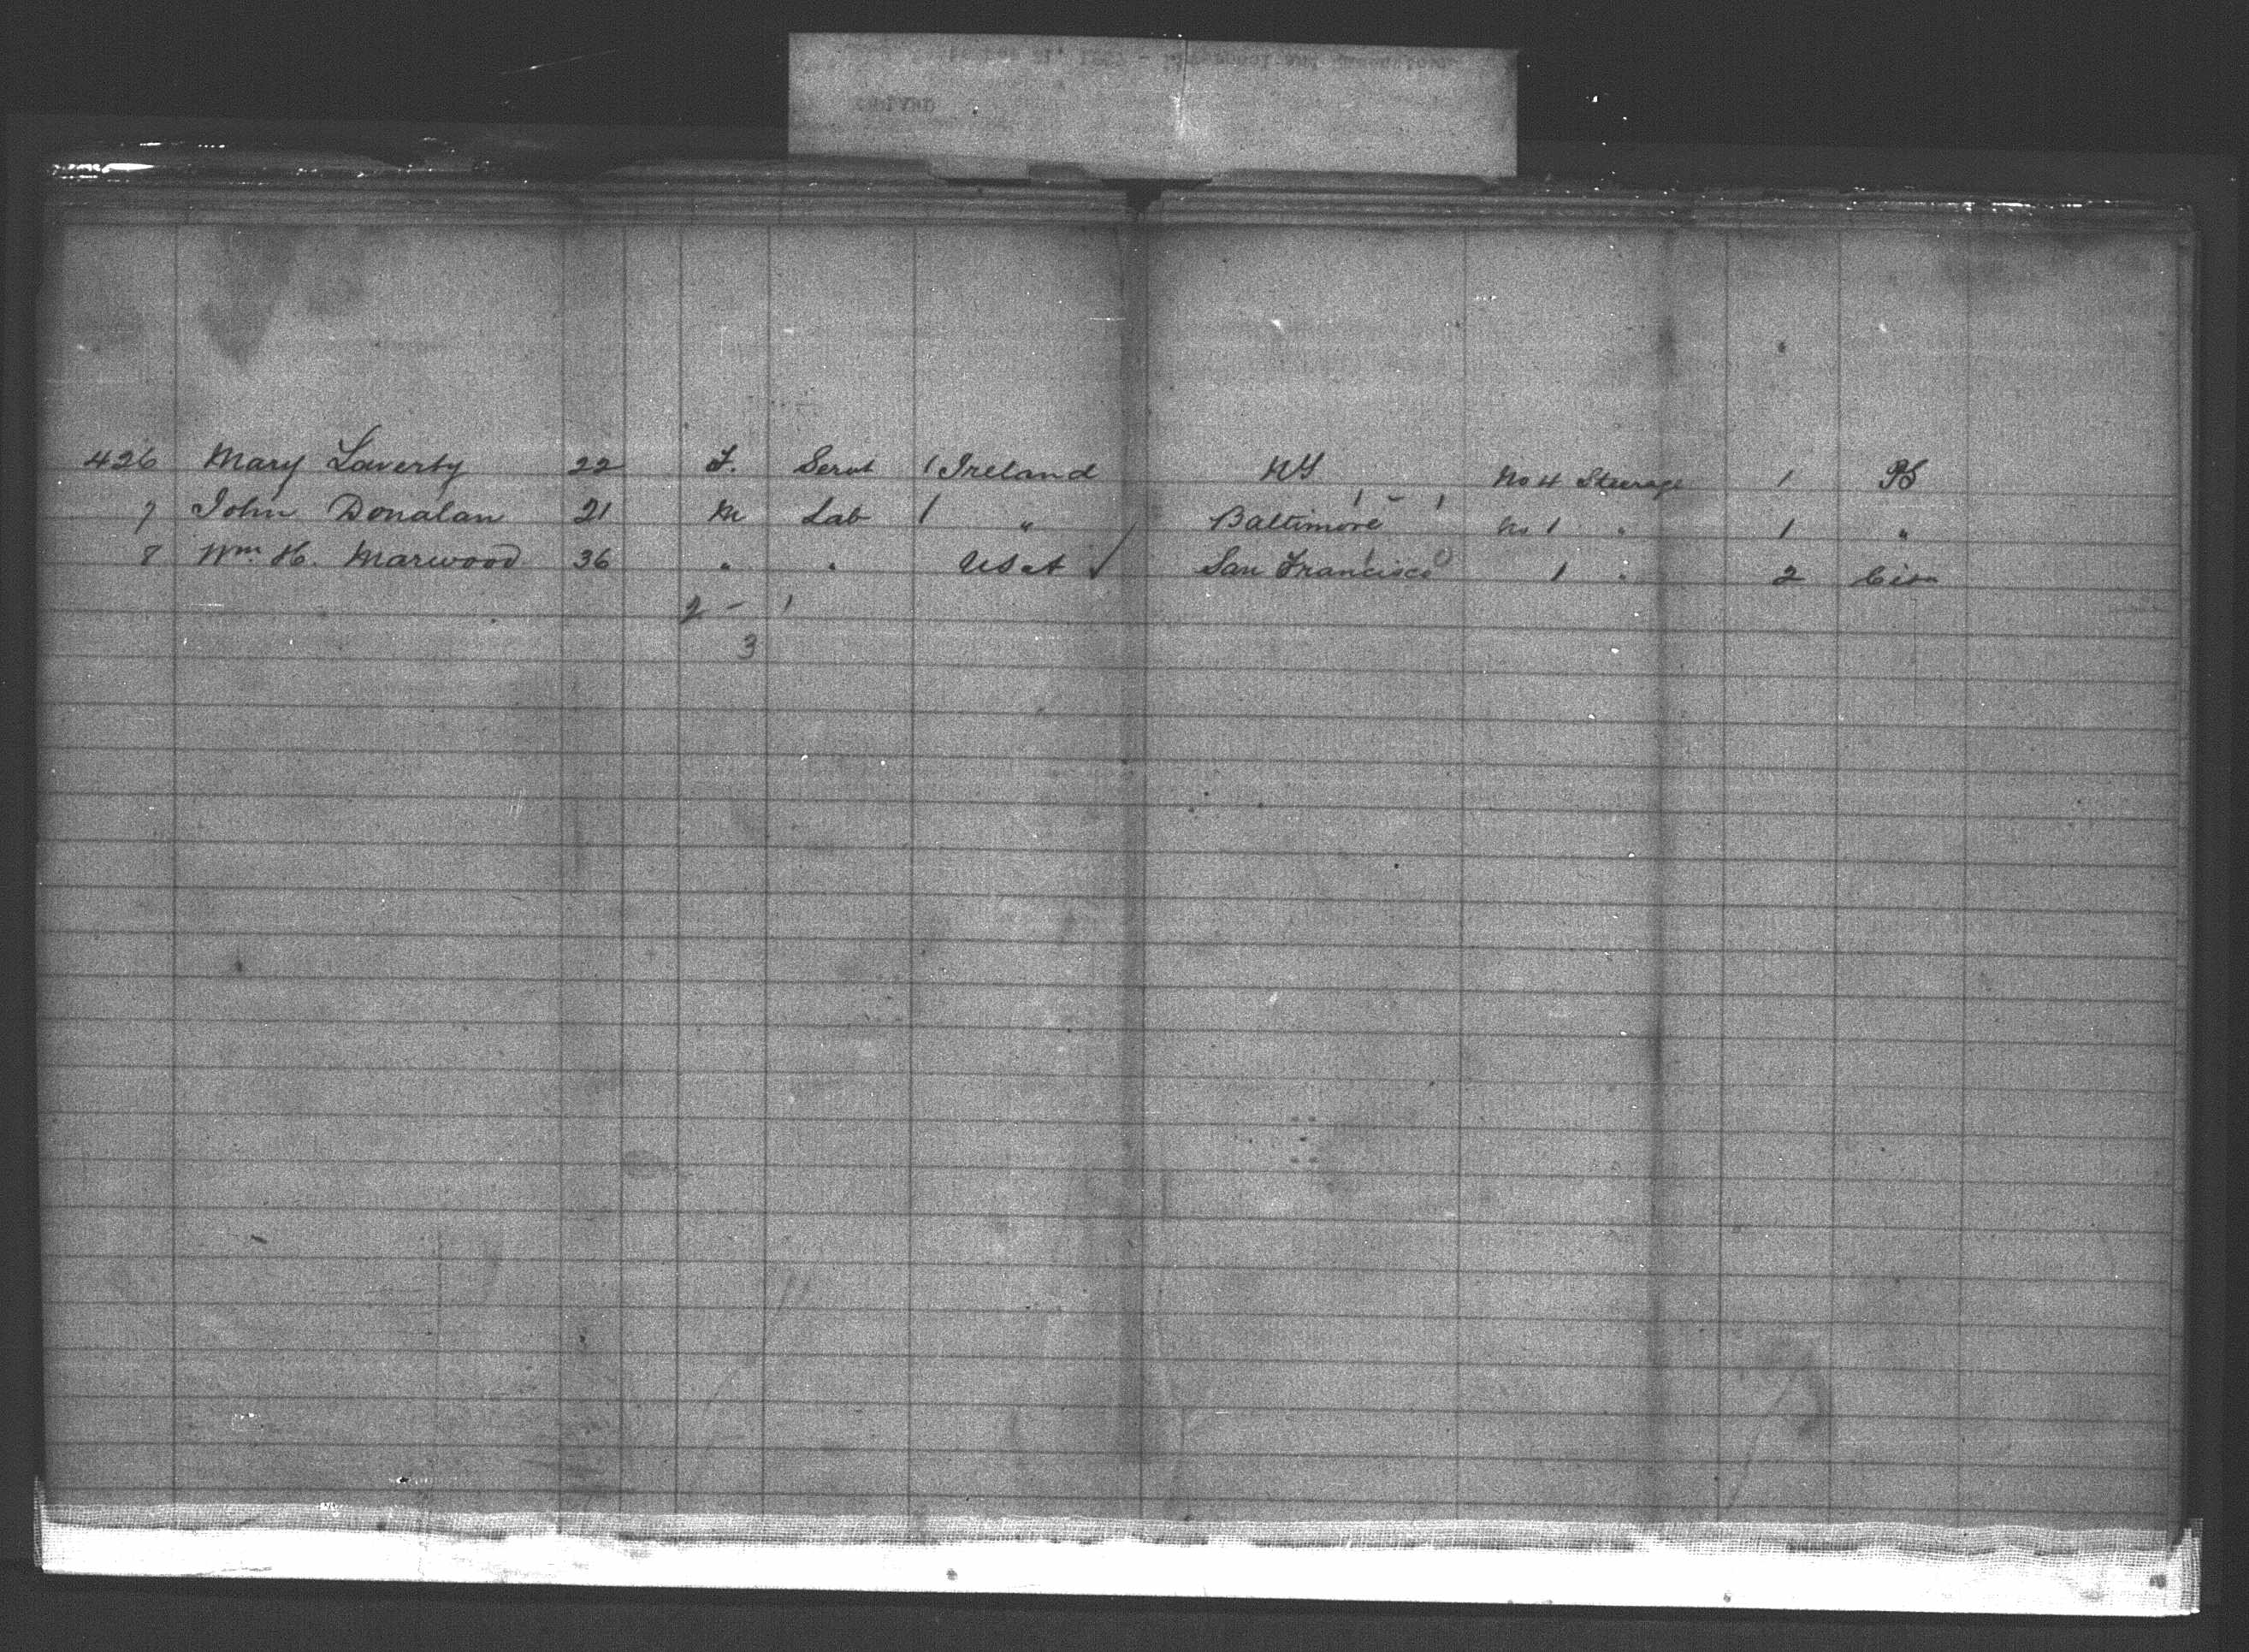 426 Mary Laverty 22 F. Servt 1 Ireland NY No 4 Steerage 1 PS
7 John Donalan 21 M Lab 1 " Baltimore 1 - 1 No 1 " 1 "
8 Wm H. Marwood 36 " " USA ✓ San Francisco 1 0 1 " 2 Citn
2 - 1
3